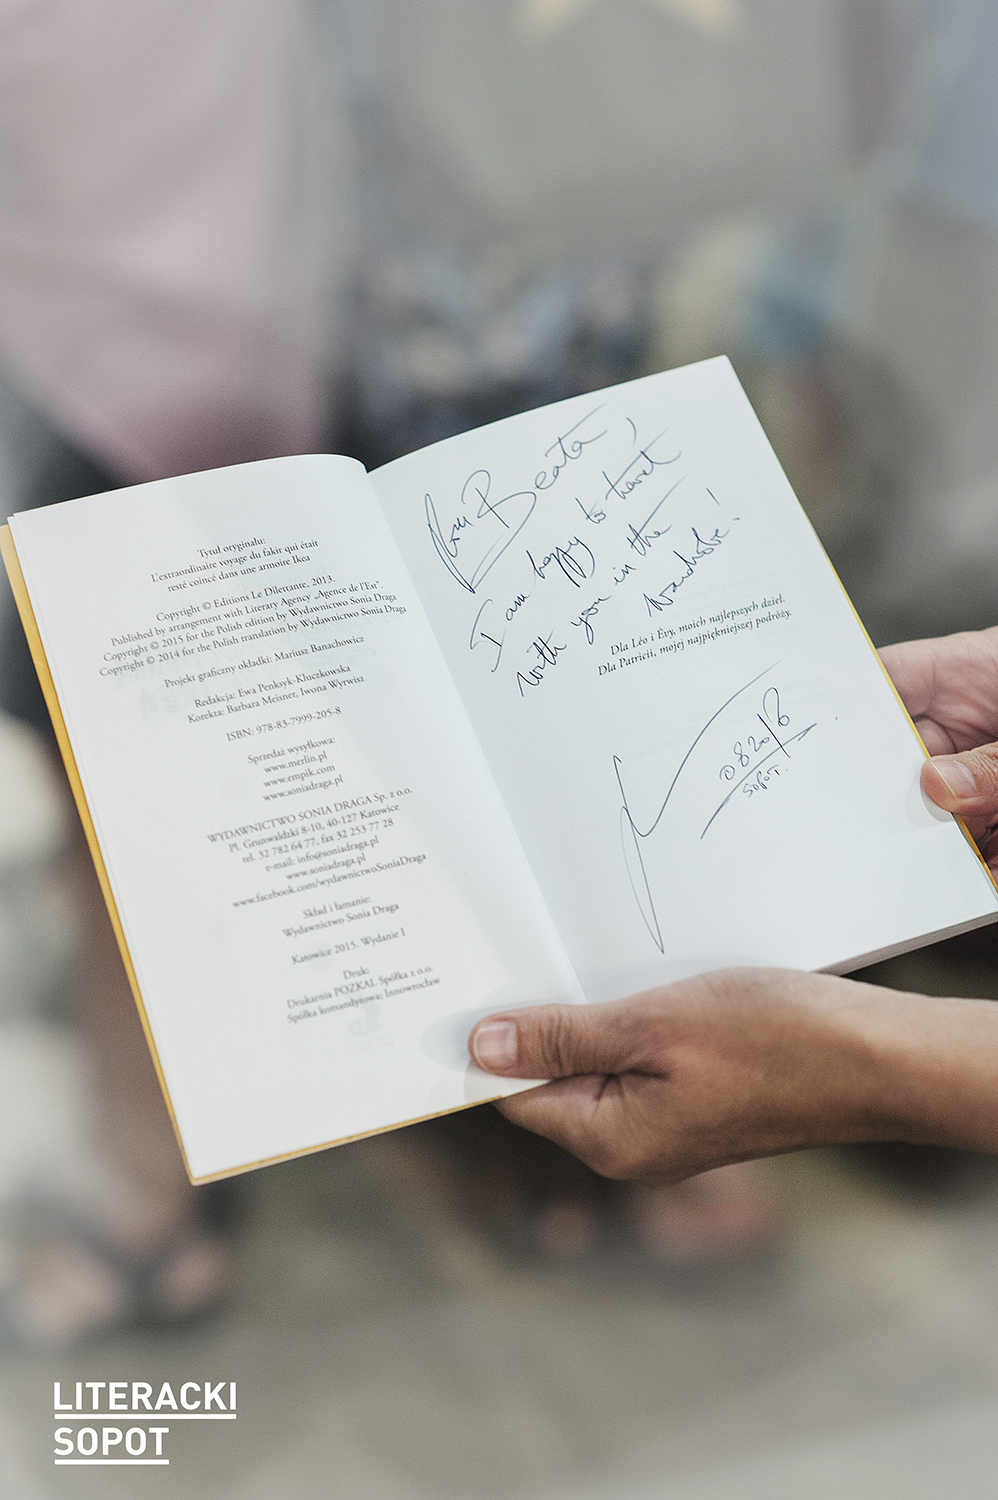 Tytuł oryginału:
L'extraordinaire voyage du fakir qui était
resté coincé dans une armoire Ikea
Copyright © Editions Le Dilettante, 2013.
Published by arrangement with Literary Agency „Agence de l'Est”.
Copyright © 2015 for the Polish edition by Wydawnictwo Sonia Draga
Copyright © 2014 for the Polish translation by Wydawnictwo Sonia Draga
Projekt graficzny okładki: Mariusz Banachowicz
Redakcja: Ewa Penksyk-Kluczkowska
Korekta: Barbara Meisner, Iwona Wyrwisz
ISBN: 978-83-7999-205-8
Sprzedaż wysyłkowa:
www.merlin.pl
www.empik.com
www.soniadraga.pl
WYDAWNICTWO SONIA DRAGA Sp. z o.o.
Pl. Grunwaldzki 8-10, 40-127 Katowice
tel. 32 782 64 77, fax 32 253 77 28
e-mail: info@soniadraga.pl
www.soniadraga.pl
www.facebook.com/wydawnictwoSoniaDraga
Skład i łamanie:
Wydawnictwo Sonia Draga
Katowice 2015. Wydanie I
Druk:
Drukarnia POZKAL Spółka z o.o.
Spółka komandytowa; Innowrocław
Beata,
I am happy to travel
with you in the
wardrobe!
Dla Léo i Évy, moich najlepszych dzieł.
Dla Patricii, mojej najpiękniejszej podróży.
SOPOT.
LITERACKI
SOPOT